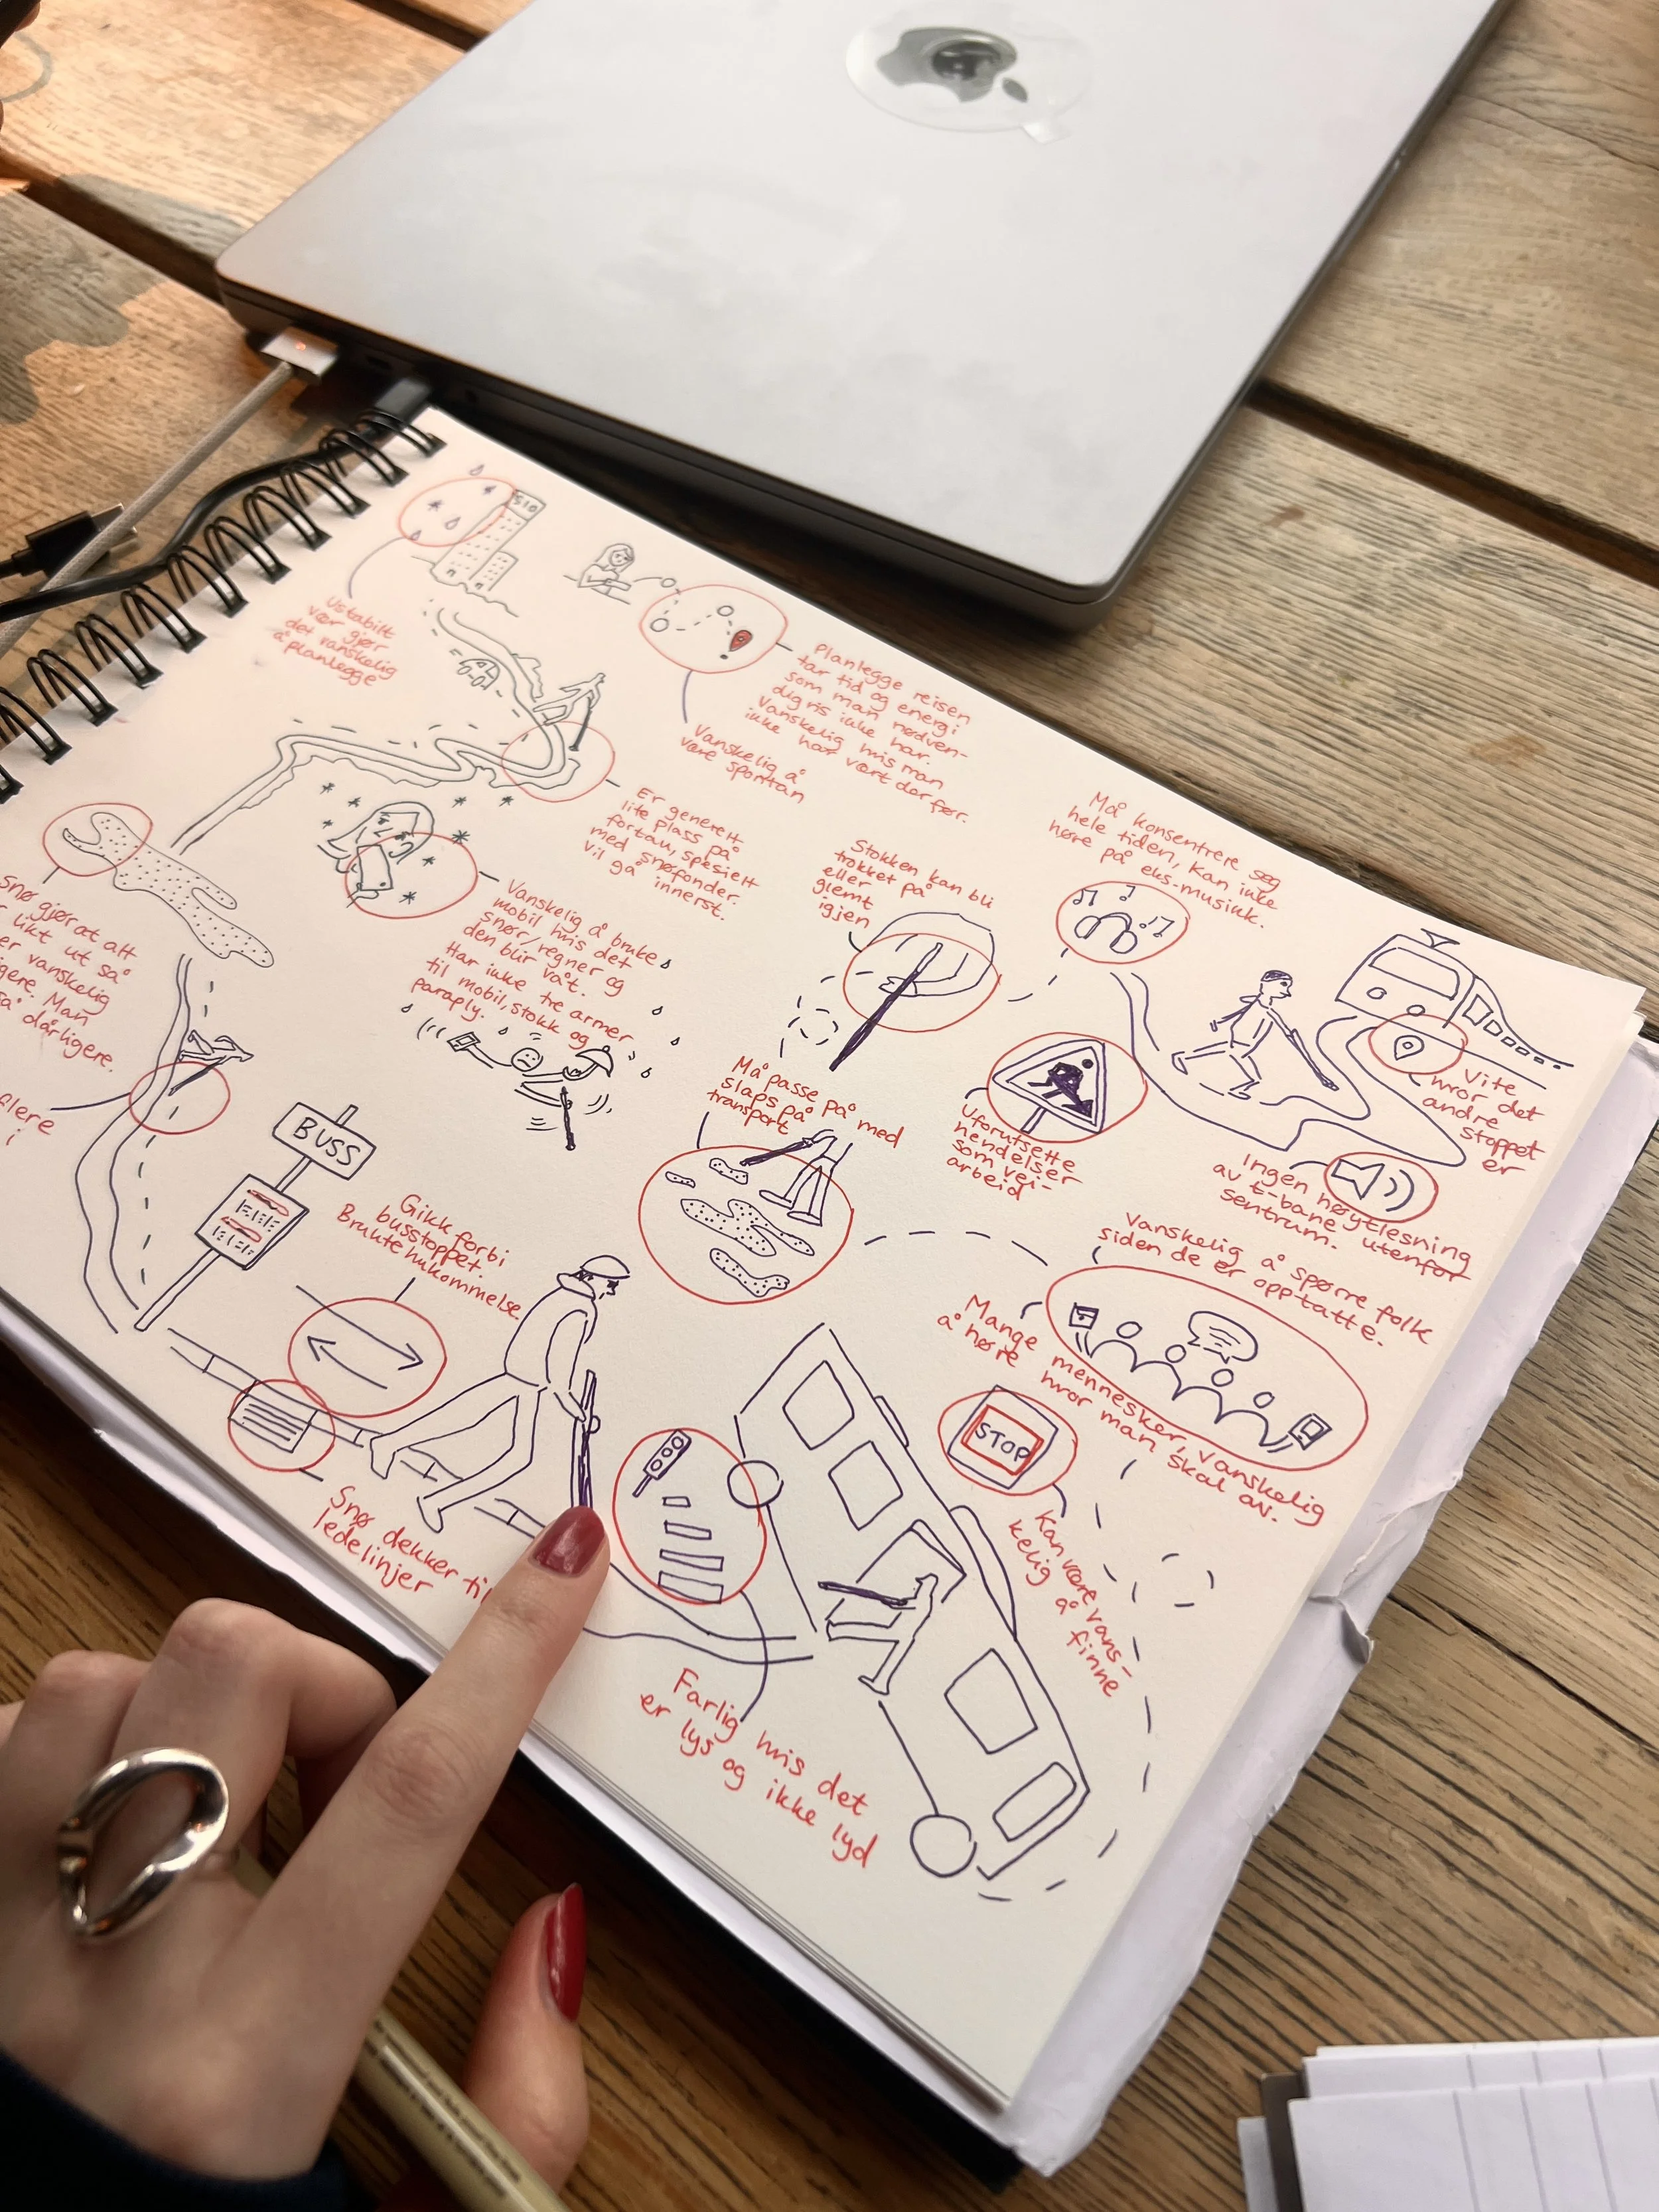 SIO
Ustabilt
vær gjør
det vanskelig
å planlegge
Planlegge reisen
tar tid og energi
som man nødven-
digvis ikke har.
Vanskelig hvis man
ikke har vært der før.
Vanskelig å
være spontan
Er generelt
lite plass på
fortau, spesielt
med snøfonder.
Vil gå innerst.
Snø gjør at alt
likt ut så
er vanskelig
Man
så dårligere.
i
Vanskelig å bruke
mobil hvis det
snør/regner og
den blir våt.
Har ikke tre armer
til mobil, stokk og
paraply.
Stokken kan bli
tråkket på
eller
glemt
igjen
Må konsentrere seg
hele tiden, kan ikke
høre på eks. musikk.
Vite
hvor det
andre
stoppet
er
Uforutsette
hendelser
som vei-
arbeid
Ingen høytlesning
av t-bane utenfor
sentrum.
Må passe på med
slaps på
transport
BUSS
Gikk forbi
busstoppet.
Brukte hukommelse.
Vanskelig å spørre folk
siden de er opptatte.
Mange mennesker, vanskelig
å høre hvor man skal av.
STOP
Kan være vans-
kelig å
finne
Snø dekker til
ledelinjer
Farlig hvis det
er lys og ikke lyd